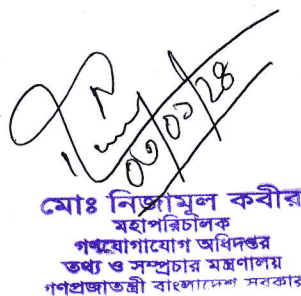 ০৩/০১/২৪
মোঃ নিজামূল কবীর
মহাপরিচালক
গণযোগাযোগ অধিদপ্তর
তথ্য ও সম্প্রচার মন্ত্রণালয়
গণপ্রজাতন্ত্রী বাংলাদেশ সরকার